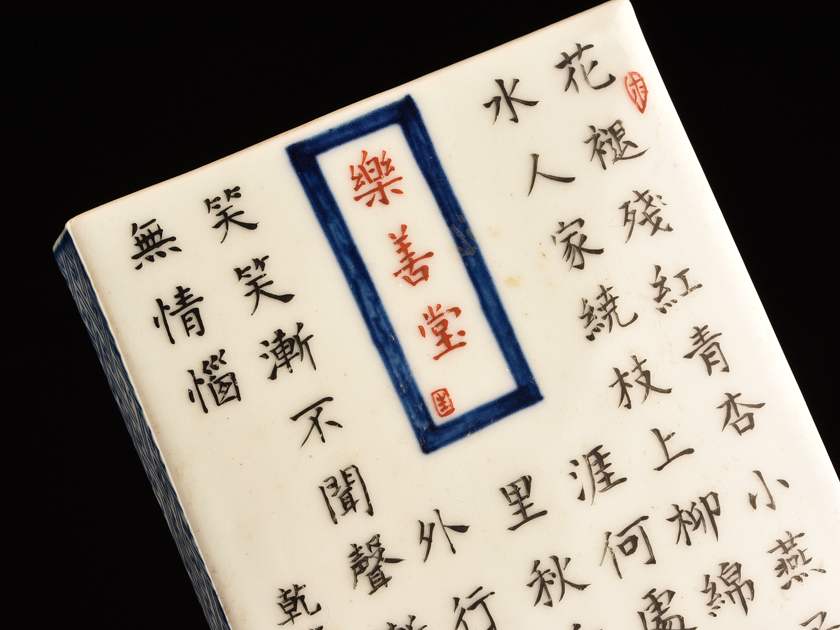 花褪殘紅青杏小燕
水人家繞枝上柳綿
涯何處
里秋
外行
樂善堂
笑笑漸不聞聲
無情惱
乾